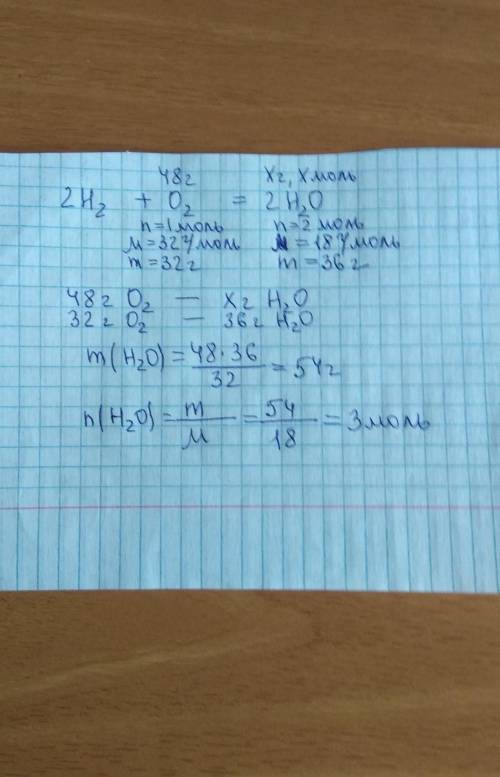 48г   хг, хмоль
2H₂ + O₂ = 2H₂O
n=1моль   n=2моль
M=32г/моль   M=18г/моль
m=32г   m=36г
48г O₂ — хг H₂O
32г O₂ — 36г H₂O
m(H₂O) = 48·36/32 = 54г
n(H₂O) = m/M = 54/18 = 3моль